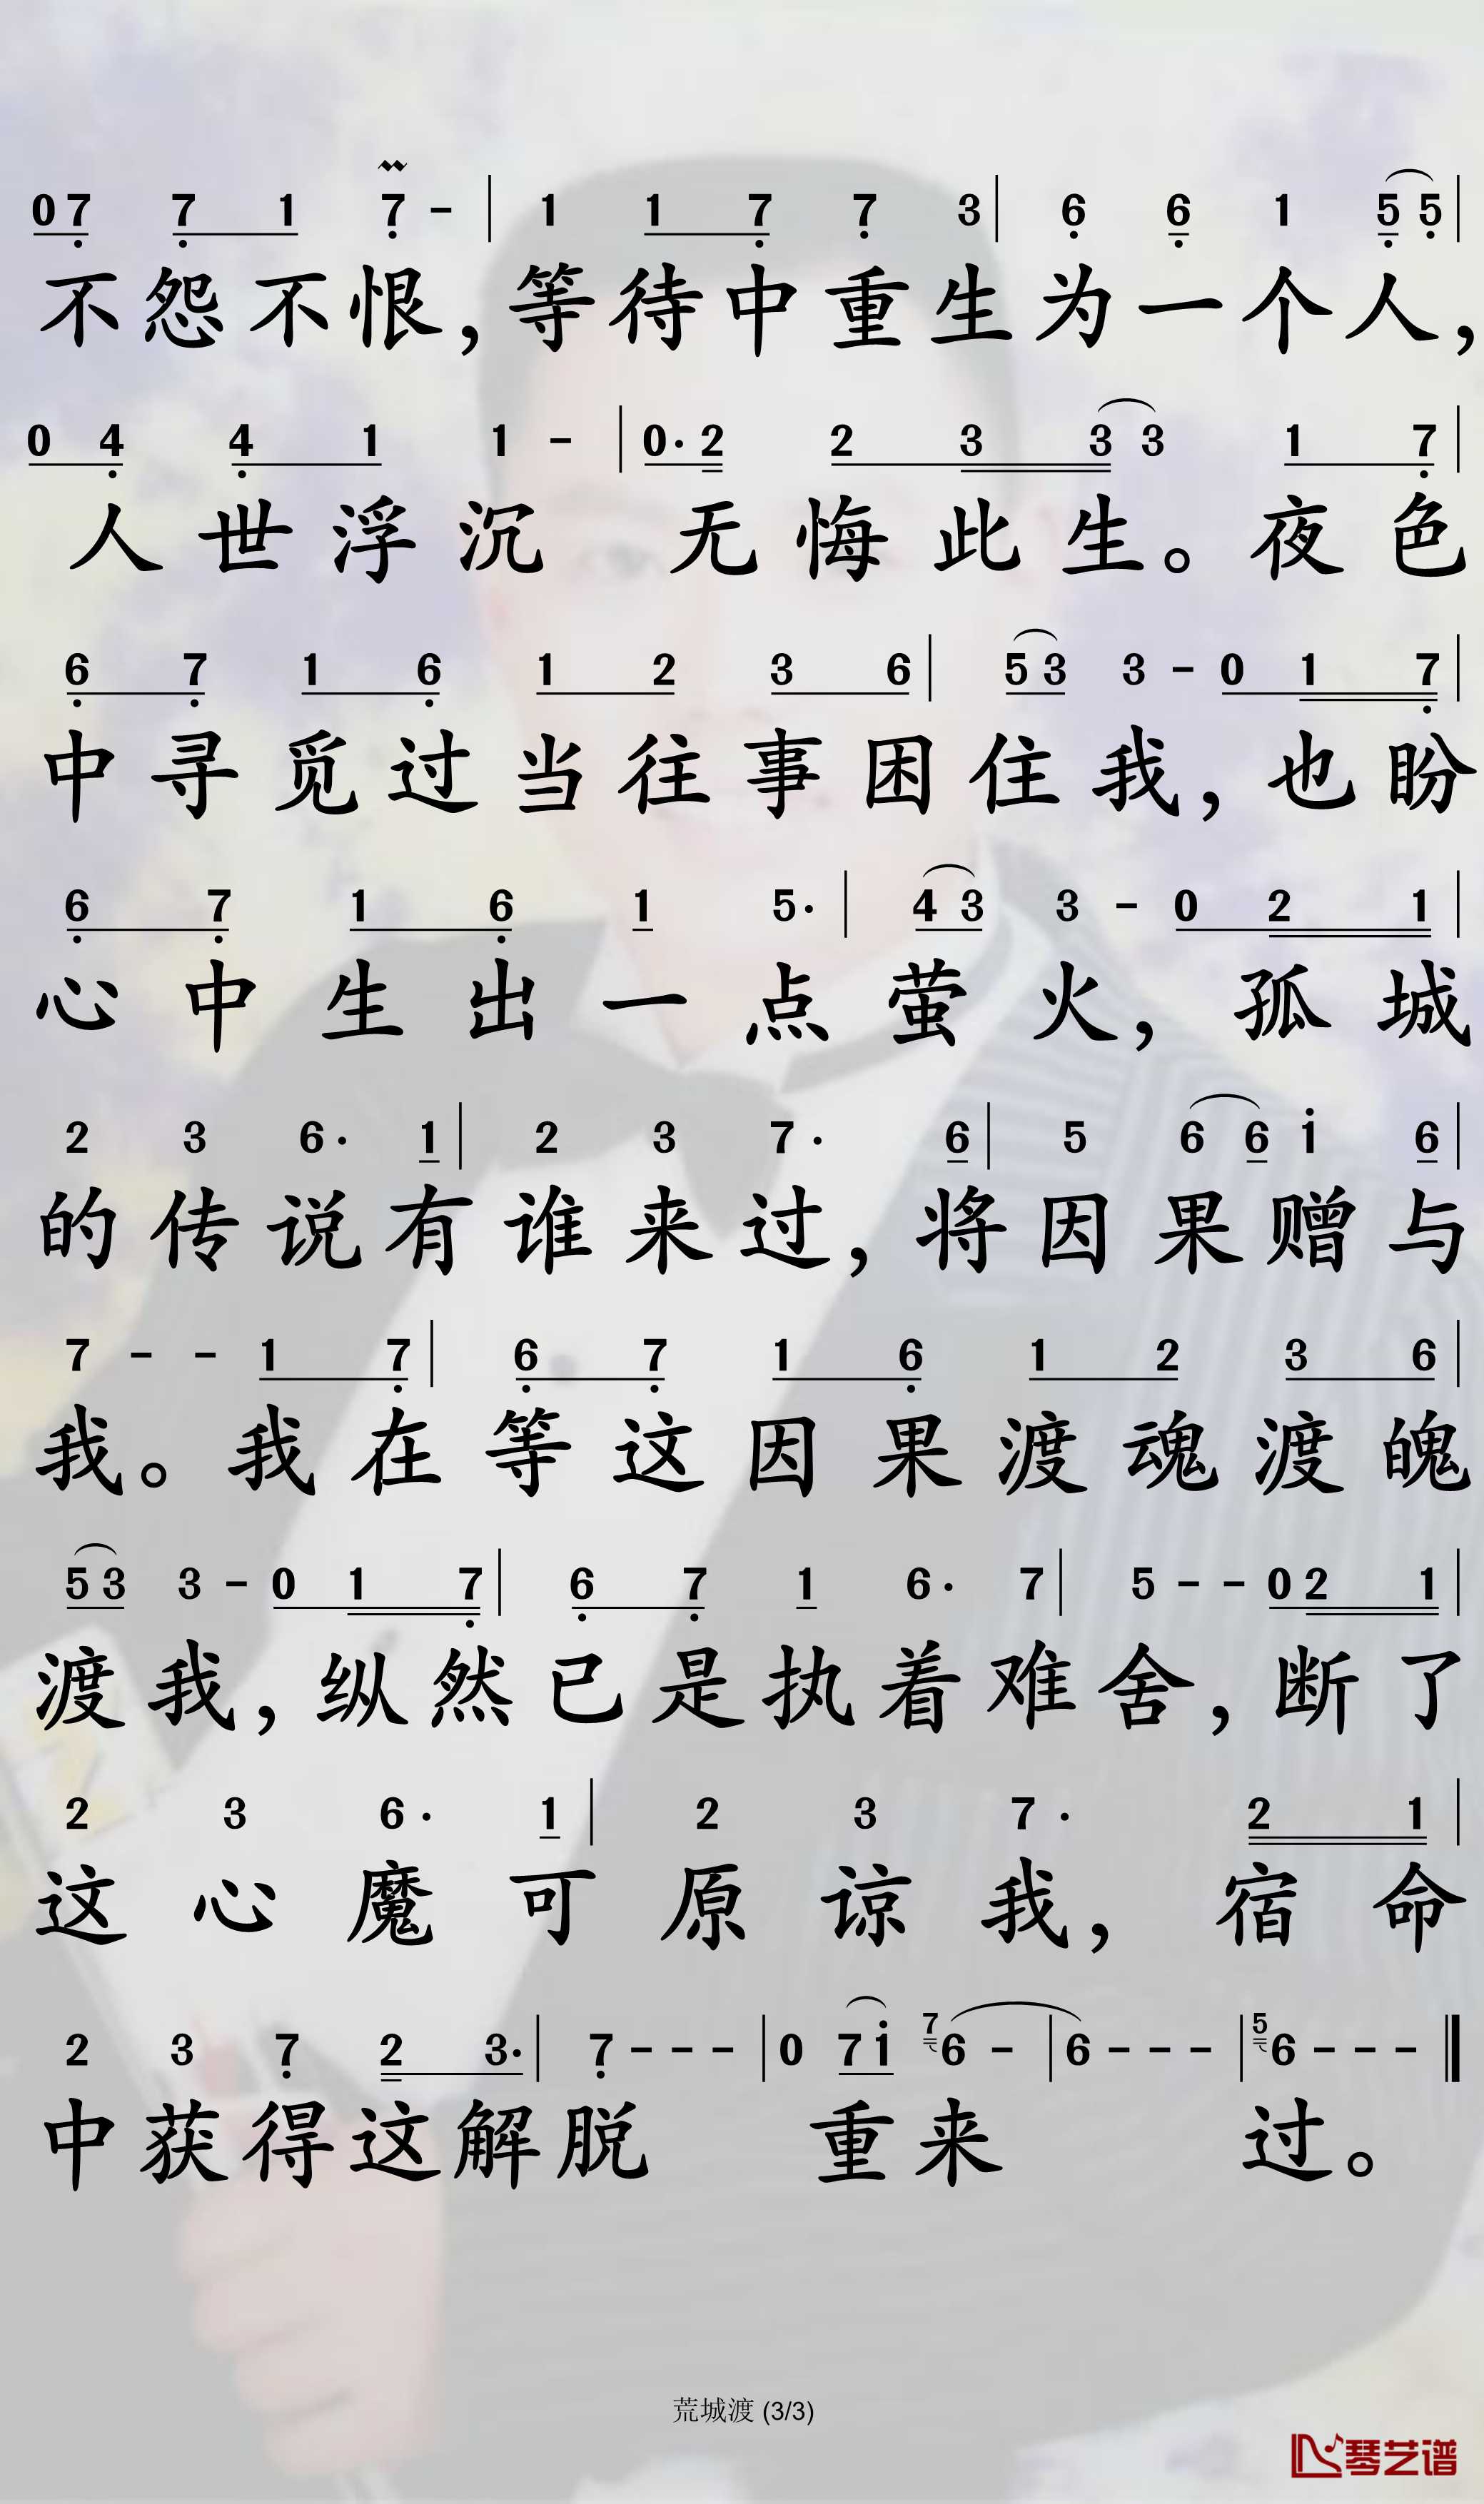 0 7 7 1 7 - | 1 1 7 7 3 | 6 6 1 5 5 |
不怨不恨,等待中重生为一个人,
0 4 4 1 1 - | 0· 2 2 3 3 3 1 7 |
人世浮沉 无悔此生。夜色
6 7 1 6 1 2 3 6 | 5 3 3 - 0 1 7 |
中寻觅过当往事困住我,也盼
6 7 1 6 1 5· | 4 3 3 - 0 2 1 |
心中生出一点萤火,孤城
2 3 6· 1 | 2 3 7· 6 | 5 6 6 i 6 |
的传说有谁来过,将因果赠与
7 - - 1 7 | 6 7 1 6 1 2 3 6 |
我。我在等这因果渡魂渡魄
5 3 3 - 0 1 7 | 6 7 1 6· 7 | 5 - - 0 2 1 |
渡我,纵然已是执着难舍,断了
2 3 6· 1 | 2 3 7· 2 1 |
这心魔可原谅我,宿命
2 3 7 2 3· | 7 - - - | 0 7 i 7 6 - | 6 - - - | 5 6 - - - ‖
中获得这解脱 重来 过。
荒城渡 (3/3)
琴艺谱